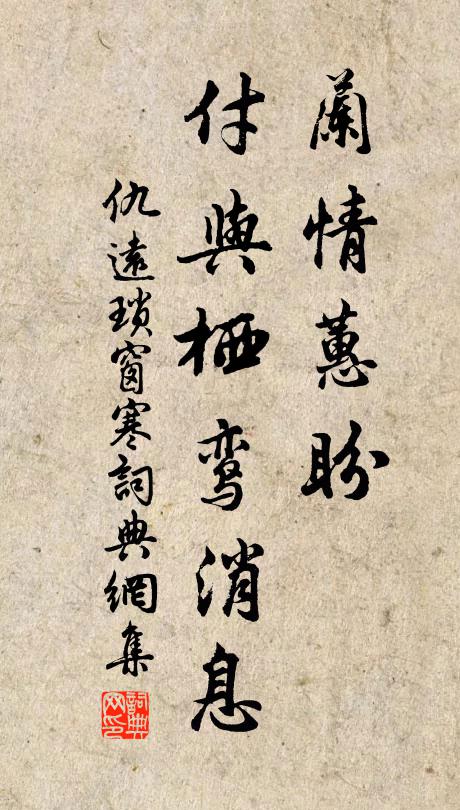 蘭情蕙盼
付與栖鸾消息
仇遠瑣窗寒詞典網集
詞典网印